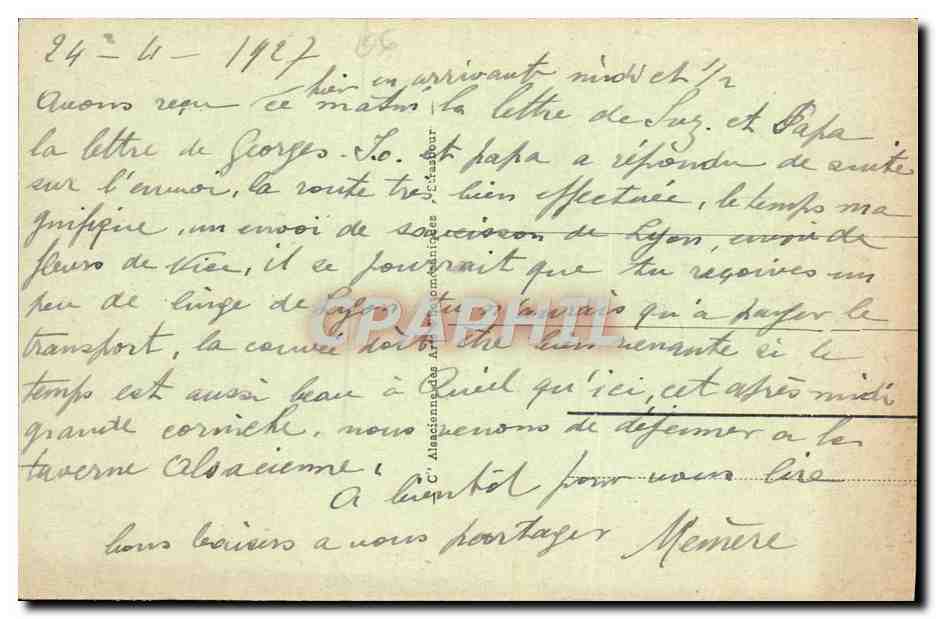 24 - 4 - 1927
hier en arrivant midi et 1/2
Avons reçu ce matin la lettre de Suz. et Papa
la lettre de Georges. Jo. et papa a répondu de suite
sur l'envoi, la route très bien effectuée, le temps ma
gnifique, un envoi de saucisson de Lyon, envoi de
fleurs de Nice, il se pourrait que tu reçoives un
peu de linge de Lyon, tu n'aurais qu'à payer le
transport, la couvée doit être bien venante si le
temps est aussi beau à Rueil qu'ici, cet après midi
grande corniche, nous venons de déjeuner a la
taverne alsacienne,
A bientôt pour vous lire
bons baisers a vous partager Mémère
Cie Alsacienne des Arts Photomécaniques, Strasbourg
CPAPHIL